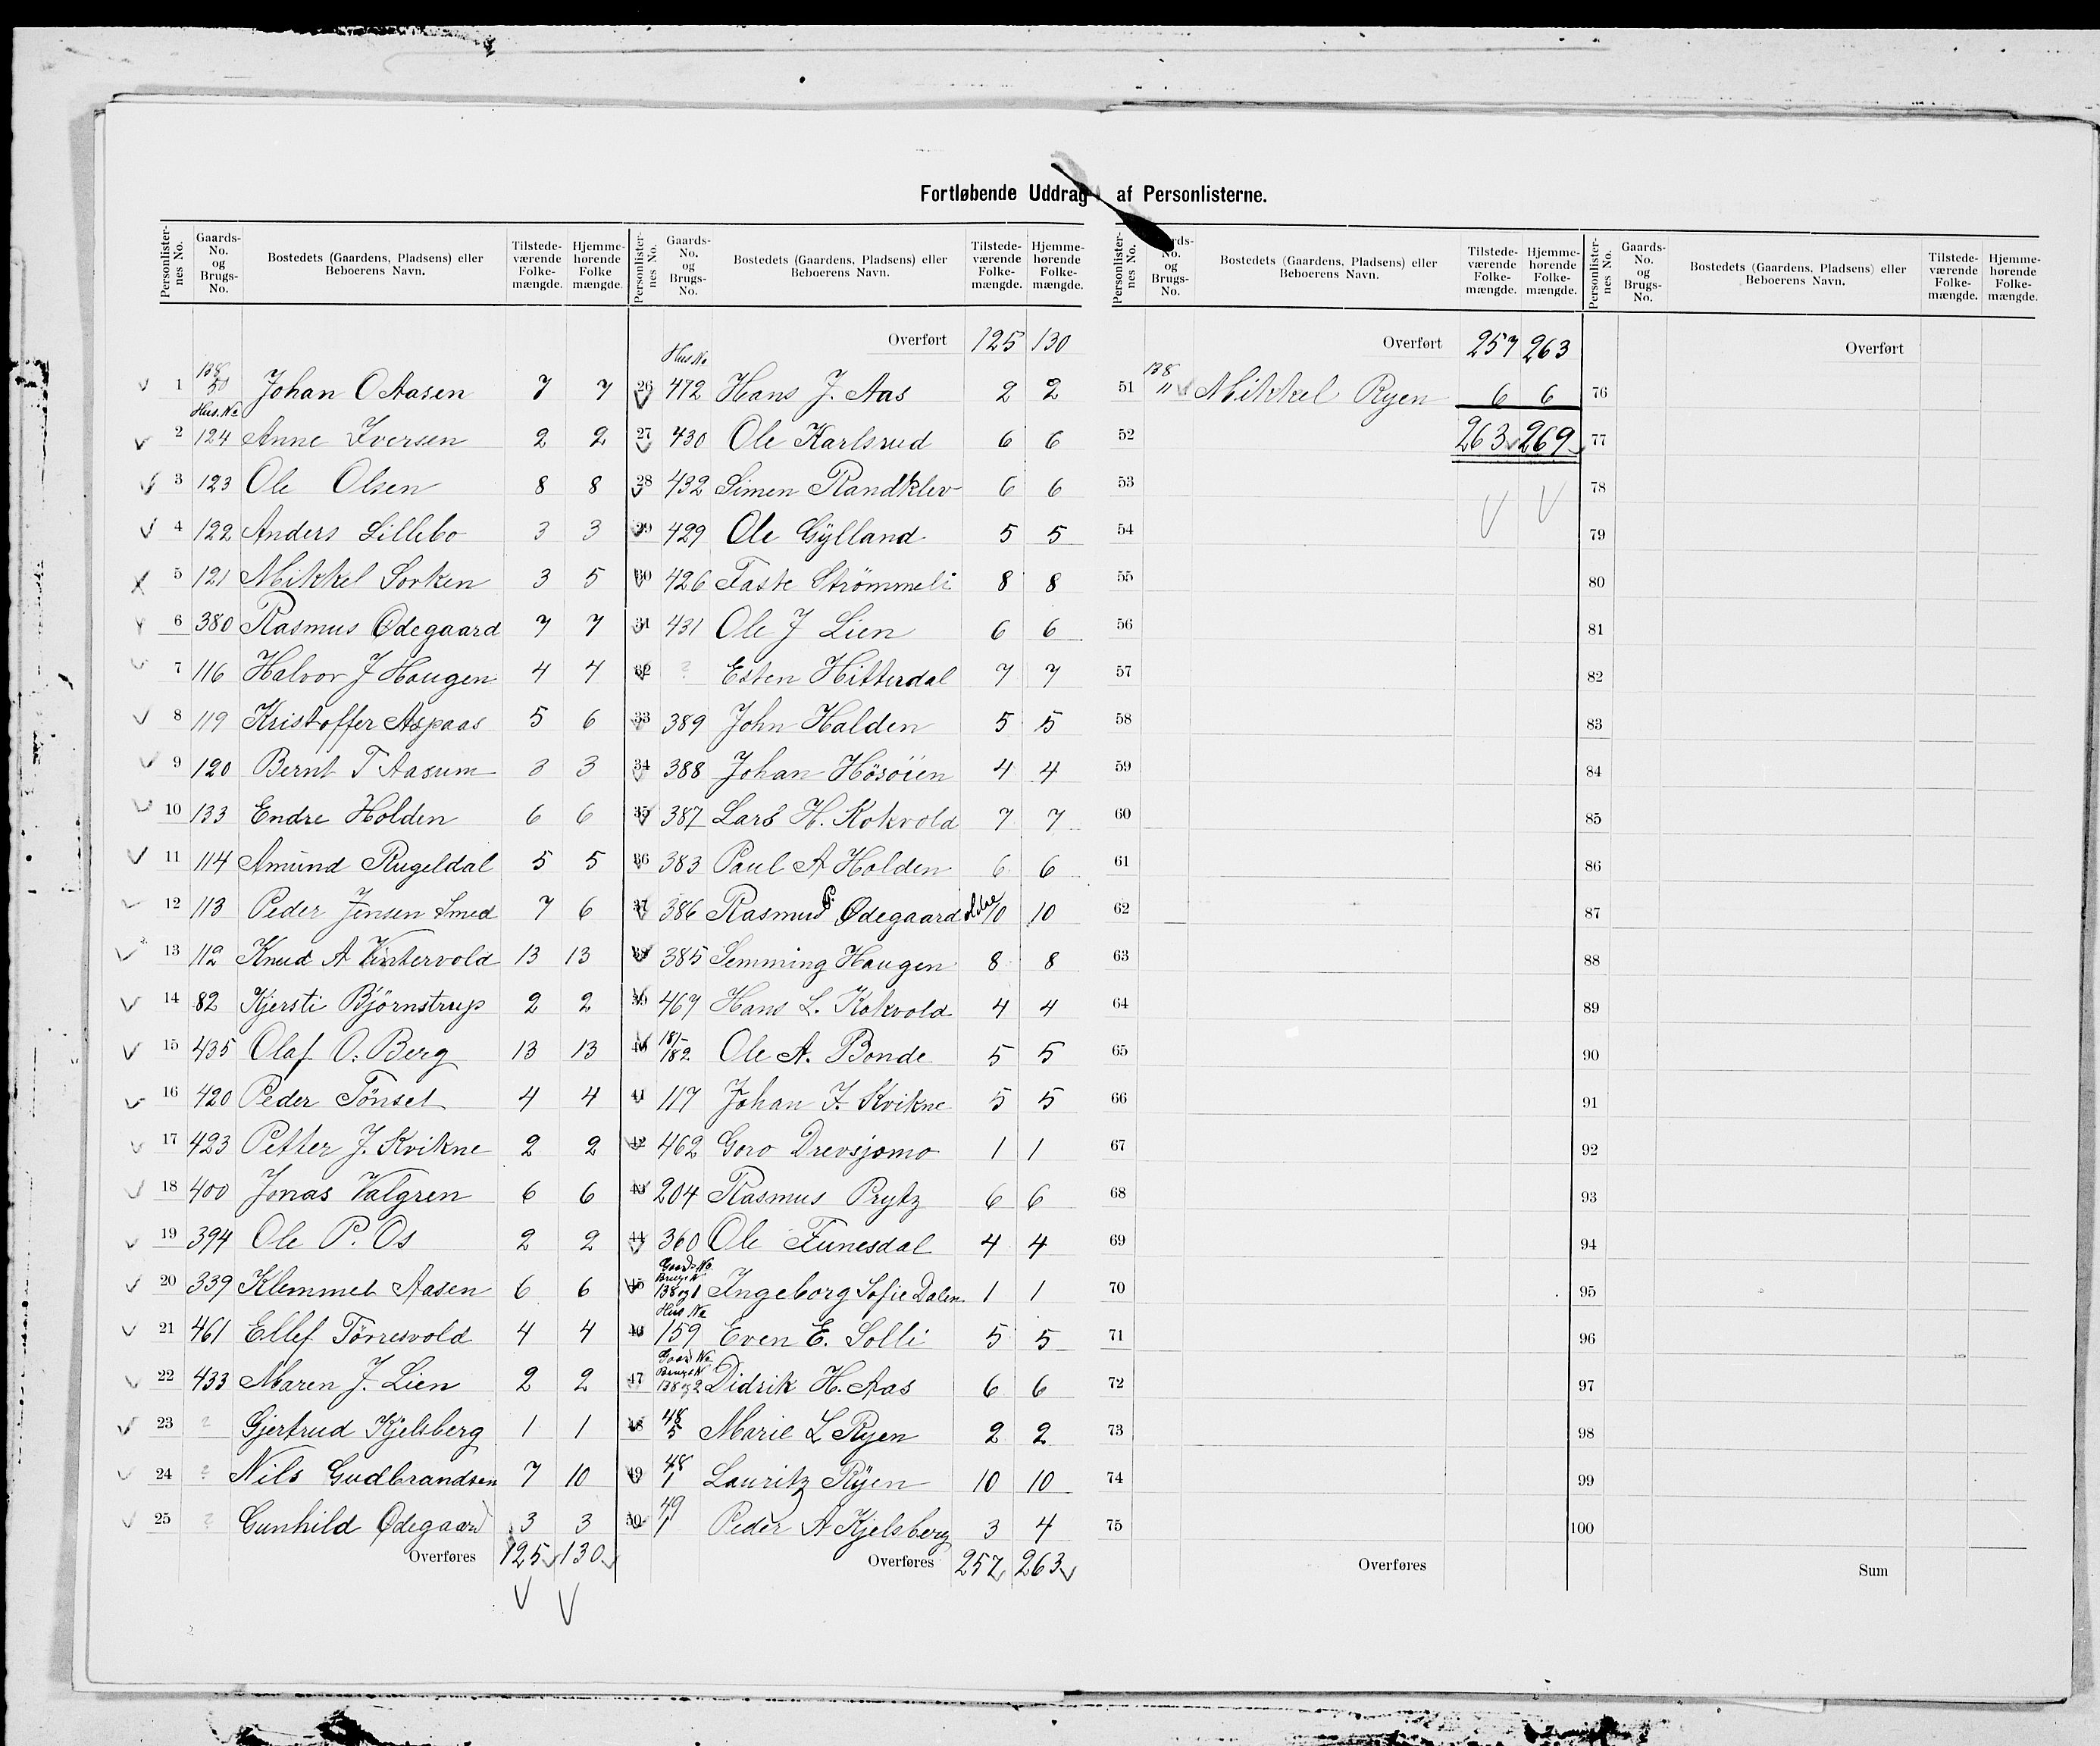 Fortløbende Uddrag af Personlisterne.
Personlisternes No. Gaards-No. og Brugs-No. Bostedets (Gaardens, Pladsens) eller Beboerens Navn. Tilstedeværende Folkemængde. Hjemmehørende Folkemængde.
1 138 50 Johan O Aasen 7 7
Hus. No
2 124 Anne Iversen 2 2
3 123 Ole Olsen 8 8
4 122 Anders Lillebo 3 3
5 121 Mikkel Sorken 3 5
6 380 Rasmus Ødegaard 7 7
7 116 Halvor J Haugen 4 4
8 119 Kristoffer Aspaas 5 6
9 120 Bernt T Aasum 3 3
10 133 Endre Holden 6 6
11 114 Amund Rugeldal 5 5
12 113 Peder Jensen Smed 7 6
13 112 Knud A Vintervold 13 13
14 82 Kjersti Björnstrup 2 2
15 435 Olaf O. Berg 13 13
16 420 Peder Tönset 4 4
17 423 Petter J. Kvikne 2 2
18 400 Jonas Valgren 6 6
19 394 Ole P. Os 2 2
20 339 Klemmet Aasen 6 6
21 461 Ellef Törresvold 4 4
22 433 Maren J. Lien 2 2
23 ? Gjertrud Kjelsberg 1 1
24 ? Nils Gudbrandsen 7 10
25 ? Gunhild Ødegaard 3 3
Overføres 125 130
Personlisternes No. Gaards-No. og Brugs-No. Bostedets (Gaardens, Pladsens) eller Beboerens Navn. Tilstedeværende Folkemængde. Hjemmehørende Folkemængde.
Overført 125 130
Hus No
26 472 Hans J. Aas 2 2
27 430 Ole Karlsrud 6 6
28 432 Simen Randklev 6 6
29 429 Ole Gylland 5 5
30 426 Faste Strömmeli 8 8
31 431 Ole J Lien 6 6
32 ? Esten Hitterdal 7 7
33 389 John Halden 5 5
34 388 Johan Hösöien 4 4
35 387 Lars H. Kokvold 7 7
36 383 Paul A Holden 6 6
37 386 Rasmus P. Ødegaard 10 10
38 385 Semming Haugen 8 8
39 467 Hans L. Kokvold 4 4
40 181-182 Ole A. Bonde 5 5
41 117 Johan J. Kvikne 5 5
42 462 Goro Drevsjomo 1 1
43 204 Rasmus Prytz 6 6
44 360 Ole Funesdal 4 4
Gaards No.
Brugs N
45 138 og 1 Ingeborg Sofie Dalen 1 1
Hus No
46 159 Even E. Solli 5 5
Gaard No
Brugs N
47 138 og 2 Didrik H. Aas 6 6
48 48 5 Marie L Ryen 2 2
49 48 1 Lauritz Ryen 10 10
50 49 1 Peder A Kjelsberg 3 4
Overføres 257 263
Personlisternes No. Gaards-No. og Brugs-No. Bostedets (Gaardens, Pladsens) eller Beboerens Navn. Tilstedeværende Folkemængde. Hjemmehørende Folkemængde.
Overført 257 263
51 138 11 Mikkel Ryen 6 6
52 263 269
53
54
55
56
57
58
59
60
61
62
63
64
65
66
67
68
69
70
71
72
73
74
75
Overføres
Personlisternes No. Gaards-No. og Brugs-No. Bostedets (Gaardens, Pladsens) eller Beboerens Navn. Tilstedeværende Folkemængde. Hjemmehørende Folkemængde.
Overført
76
77
78
79
80
81
82
83
84
85
86
87
88
89
90
91
92
93
94
95
96
97
98
99
100
Sum